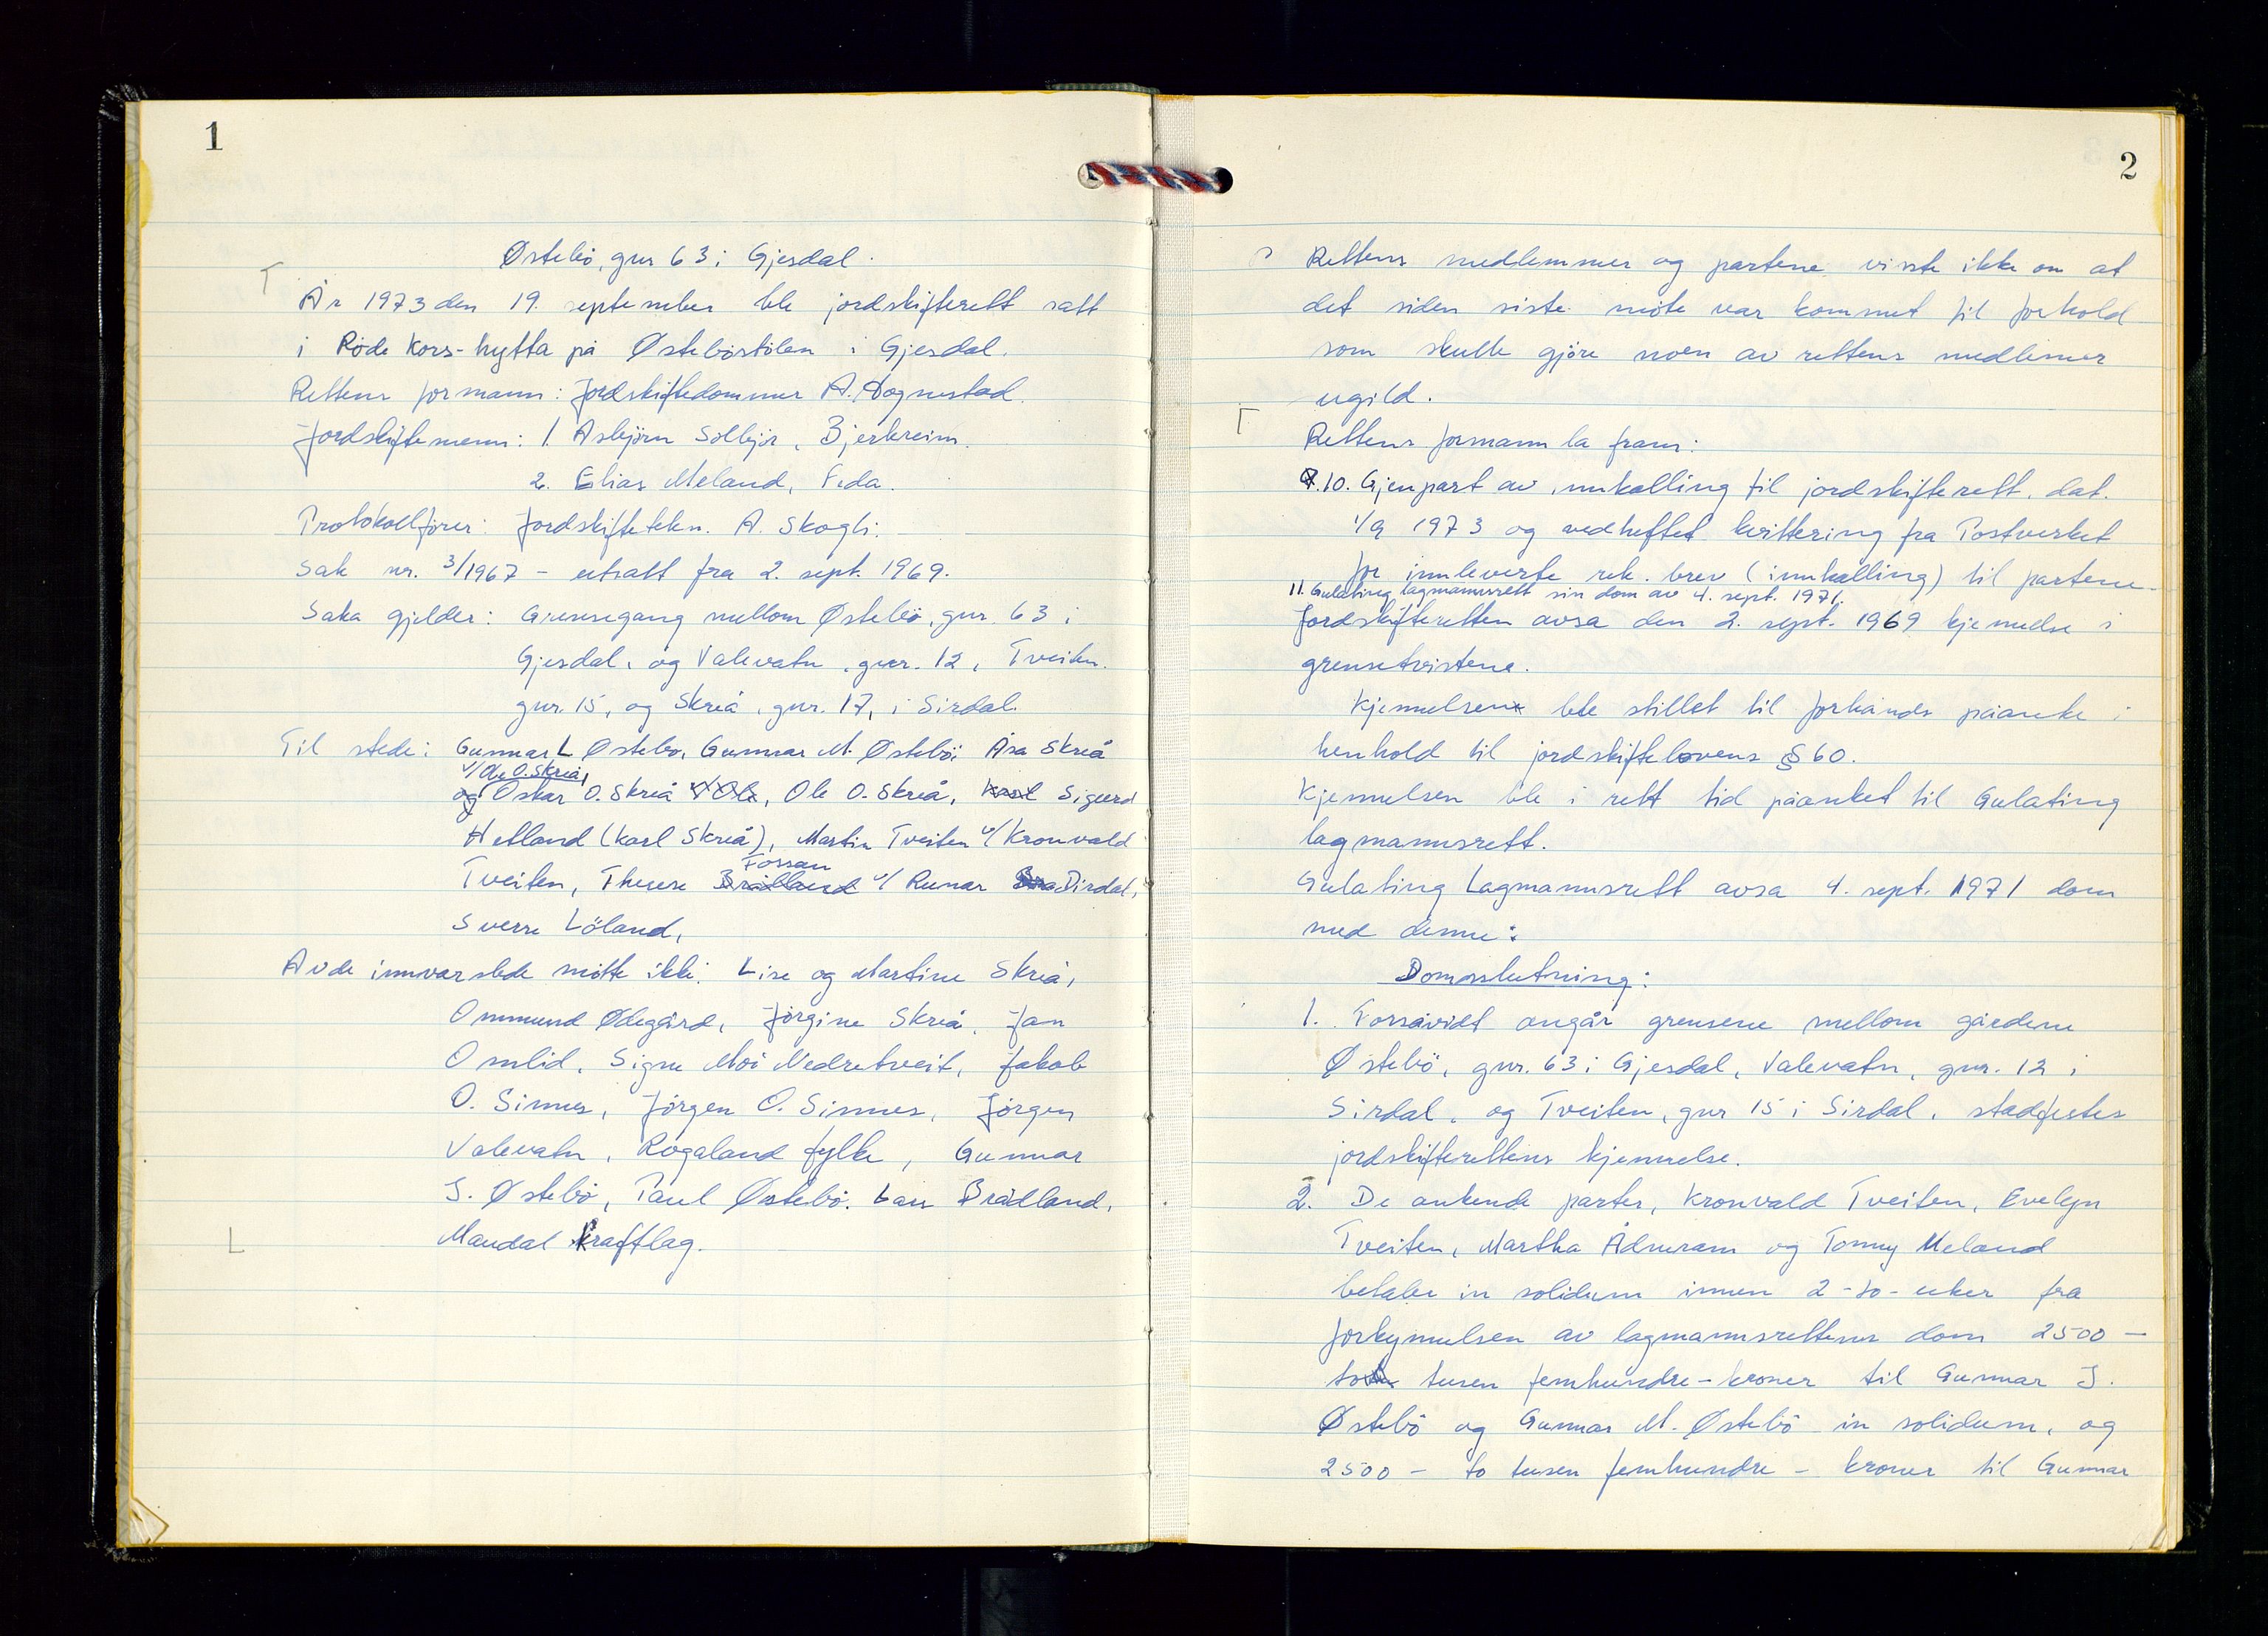 1
Østebö, gnr 63 i Gjesdal.
År 1973 den 19. september ble jordskifterett satt
i Röde Kors-hytta på Östeböstölen i Gjesdal.
Rettens formann: Jordskiftedommer A. Dognestad.
Jordskiftemenn: 1. Asbjörn Solbjör, Bjerkreim.
2. Elias Meland, Feda.
Protokollförer: Jordskiftetekn. A. Skogli.
Sak nr. 3/1967 - utsatt fra 2. sept. 1969.
Saka gjelder: Grensegang mellom Østebö, gnr. 63 i
Gjesdal, og Valevatn, gnr. 12, Tveiten.
gnr. 15, og Skreå, gnr. 17, i Sirdal.
Til stede: Gunnar L Østebö, Gunnar M. Østebö, Åsa Skreå
v/Ole O. Skreå,
og Oskar O. Skreå v/Ole, Ole O. Skreå, Karl Sigurd
Hetland (Karl Skreå), Martin Tveiten v/Kronvald
Fossan
Tveiten, Therese Brådland v/ Runar Dirdal,
Sverre Löland,
Av de innvarslede mötte ikke: Lise og Martine Skreå,
Ommund Ødegård, Jörgine Skreå, Jan
Omlid, Signe Moi Nedretveit, Jakob
O. Sinnes, Jörgen O. Sinnes, Jörgen
Valevatn, Rogaland fylke, Gunnar
S. Østebö, Paul Østebö, Lars Brådland,
Mandal Kraftlag.
2
Rettens medlemmer og partene visste ikke om at
det siden siste möte var kommet til forhold
som skulle gjöre noen av rettens medlemer
ugild.
Rettens formann la fram:
10. Gjenpart av innkalling til jordskifterett, dat.
1/9 1973 og vedheftet kvittering fra Postverket
for innleverte rek. brev (innkalling) til partene.
11. Gulating lagmannsrett sin dom av 4. sept. 1971.
Jordskifteretten avsa den 2. sept. 1969 kjennelse i
grensetvistene.
Kjennelsen ble stillet til forhånds påanke i
henhold til jordskiftelovens § 60.
Kjennelsen ble i rett tid påanket til Gulating
lagmannsrett.
Gulating Lagmannsrett avsa 4. sept. 1971 dom
med denne:
Domsslutning:
1. Forsåvidt angår grensene mellom gårdene
Østebö, gnr. 63 i Gjesdal, Valevatn, gnr. 12 i
Sirdal, og Tveiten, gnr 15 i Sirdal, stadfestes
jordskifterettens kjennelse.
2. De ankende parter, Kronvald Tveiten, Evelyn
Tveiten, Martha Ådneram og Tonny Meland
betaler in solidum innen 2 - to - uker fra
forkynnelsen av lagmannsrettens dom 2500 -
to tusen femhundre - kroner til Gunnar S.
Østebö og Gunnar M. Østebö in solidum, og
2500 - to tusen femhundre - kroner til Gunnar